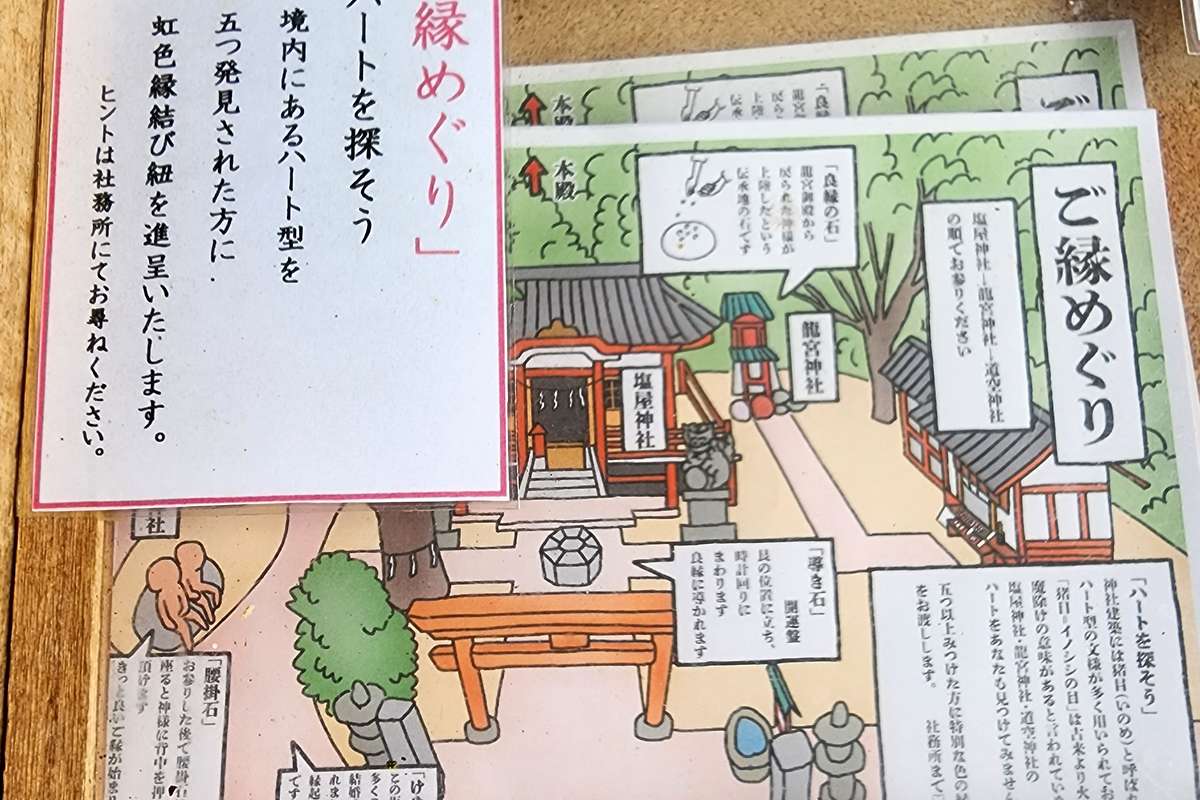 縁めぐり」
ハートを探そう
境内にあるハート型を
五つ発見された方に
虹色縁結び紐を進呈いたします。
ヒントは社務所にてお尋ねください。
ご縁めぐり
塩屋神社―龍宮神社―道空神社
の順でお参りください
本殿
本殿
「良縁の石」
龍宮御殿から
戻られた神様が
上陸したという
伝承地の石です
龍宮神社
塩屋神社
「導き石」
開運盤
艮の位置に立ち、
時計回りに
まわります
良縁に導かれます
「ハートを探そう」
神社建築には猪目(いのめ)と呼ば
ハート型の文様が多く用いられてお
「猪目=イノシシの目」は古来より火
魔除けの意味があると言われてい
塩屋神社・龍宮神社・道空神社の
ハートをあなたも見つけてみません
五つ以上みつけた方に特別な色の
をお渡しします。
社務所まで
神社
「腰掛石」
お参りした後で腰掛石
座ると神様に背中を押
頂けます
きっと良いご縁が始ま